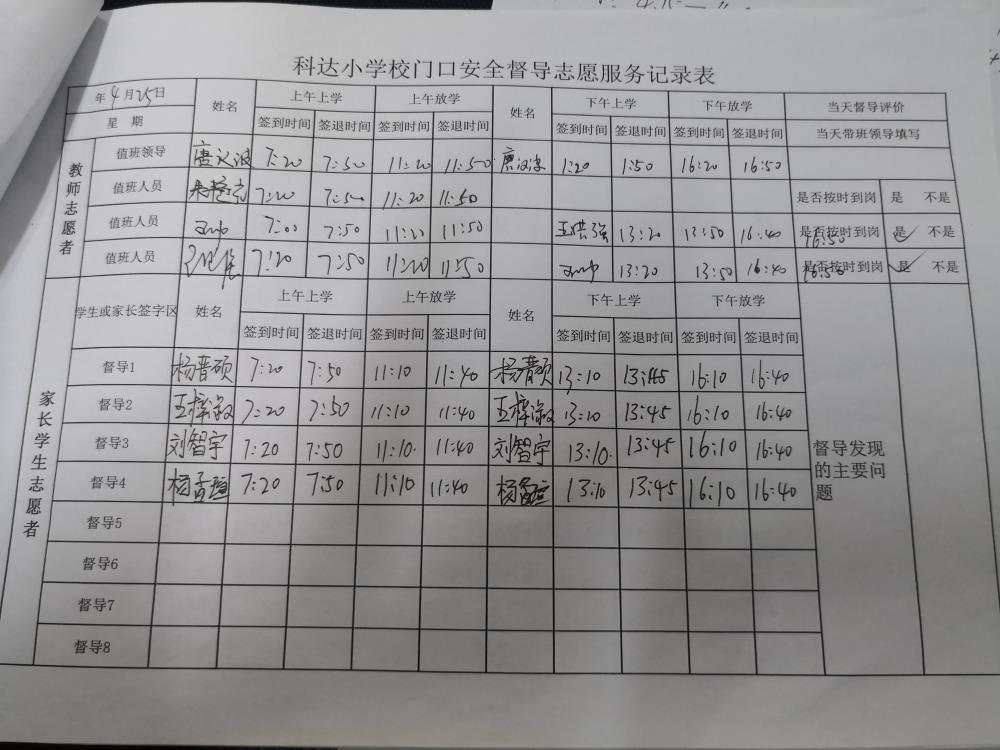 科达小学校门口安全督导志愿服务记录表
年4月25日 姓名 上午上学 上午放学 姓名 下午上学 下午放学 当天督导评价
星期 签到时间 签退时间 签到时间 签退时间 签到时间 签退时间 签到时间 签退时间 当天带班领导填写
教师志愿者
值班领导 7:20 7:50 11:20 11:50 1:20 1:50 16:20 16:50
值班人员 7:20 7:50 11:20 11:50 是否按时到岗 是 不是
值班人员 7:00 7:50 11:20 11:50 王洪强 13:20 13:50 16:40 16:50 是否按时到岗 是 不是
值班人员 7:20 7:50 11:20 11:50 13:20 13:50 16:40 16:50 是否按时到岗 是 不是
家长学生志愿者
学生或家长签字区 姓名 上午上学 上午放学 姓名 下午上学 下午放学
签到时间 签退时间 签到时间 签退时间 签到时间 签退时间 签到时间 签退时间
督导1 杨晋硕 7:20 7:50 11:10 11:40 杨晋硕 13:10 13:45 16:10 16:40
督导2 王梓淑 7:20 7:50 11:10 11:40 王梓淑 13:10 13:45 16:10 16:40
督导3 刘智宇 7:20 7:50 11:10 11:40 刘智宇 13:10 13:45 16:10 16:40
督导4 7:20 7:50 11:10 11:40 13:10 13:45 16:10 16:40
督导5
督导6
督导7
督导8
督导发现
的主要问
题